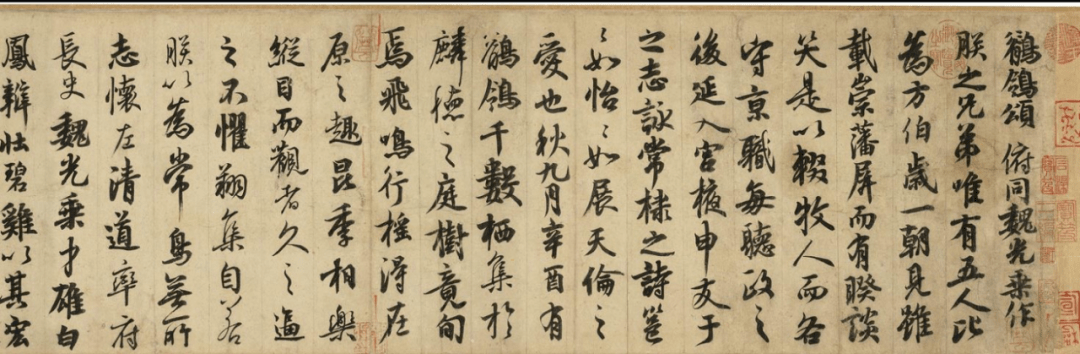 鶺鴒頌 俯同魏光乗作
朕之兄弟唯有五人比
為方伯歳一朝見雖
載崇藩屏而有睽談
笑是以輟牧人而各
守京職每聽政之
後延入宮掖申友于
之志詠常棣之詩邕
〻如怡〻如展天倫之
愛也秋九月辛酉有
鶺鴒千數栖集於
麟德之庭樹竟旬
焉飛鳴行搖得在
原之趣昆季相樂
縱目而觀者久之逼
之不懼翔集自若
朕以為常鳥無所
志懷左清道率府
長史魏光乗才雄白
鳳辯壯碧雞以其宏